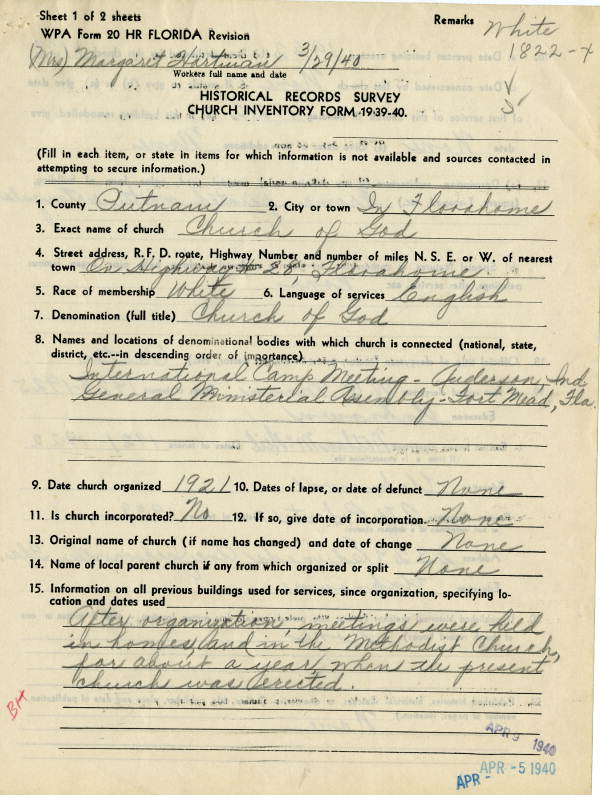 Sheet 1 of 2 sheets
Remarks White
WPA Form 20 HR FLORIDA Revision
1822-X
(Mrs) Margaret Hartman 3/29/40
Workers full name and date
HISTORICAL RECORDS SURVEY
CHURCH INVENTORY FORM 1939-40.
(Fill in each item, or state in items for which information is not available and sources contacted in
attempting to secure information.)
1. County Putnam 2. City or town In Florahome
3. Exact name of church Church of God
4. Street address, R. F. D. route, Highway Number and number of miles N. S. E. or W. of nearest
town On Highway # 28, Florahome
5. Race of membership White 6. Language of services English
7. Denomination (full title) Church of God
8. Names and locations of denominational bodies with which church is connected (national, state,
district, etc.--in descending order of importance)
International Camp Meeting - Anderson, Ind
General Ministerial Assembly - Fort Mead, Fla.
9. Date church organized 1921 10. Dates of lapse, or date of defunct None
11. Is church incorporated? No 12. If so, give date of incorporation None
13. Original name of church (if name has changed) and date of change None
14. Name of local parent church if any from which organized or split None
15. Information on all previous buildings used for services, since organization, specifying lo-
cation and dates used
After organization, meetings were held
in homes, and in the Methodist Church,
for about a year, when the present
church was erected.
BH
APR 9 1940
APR - 5 1940
APR -